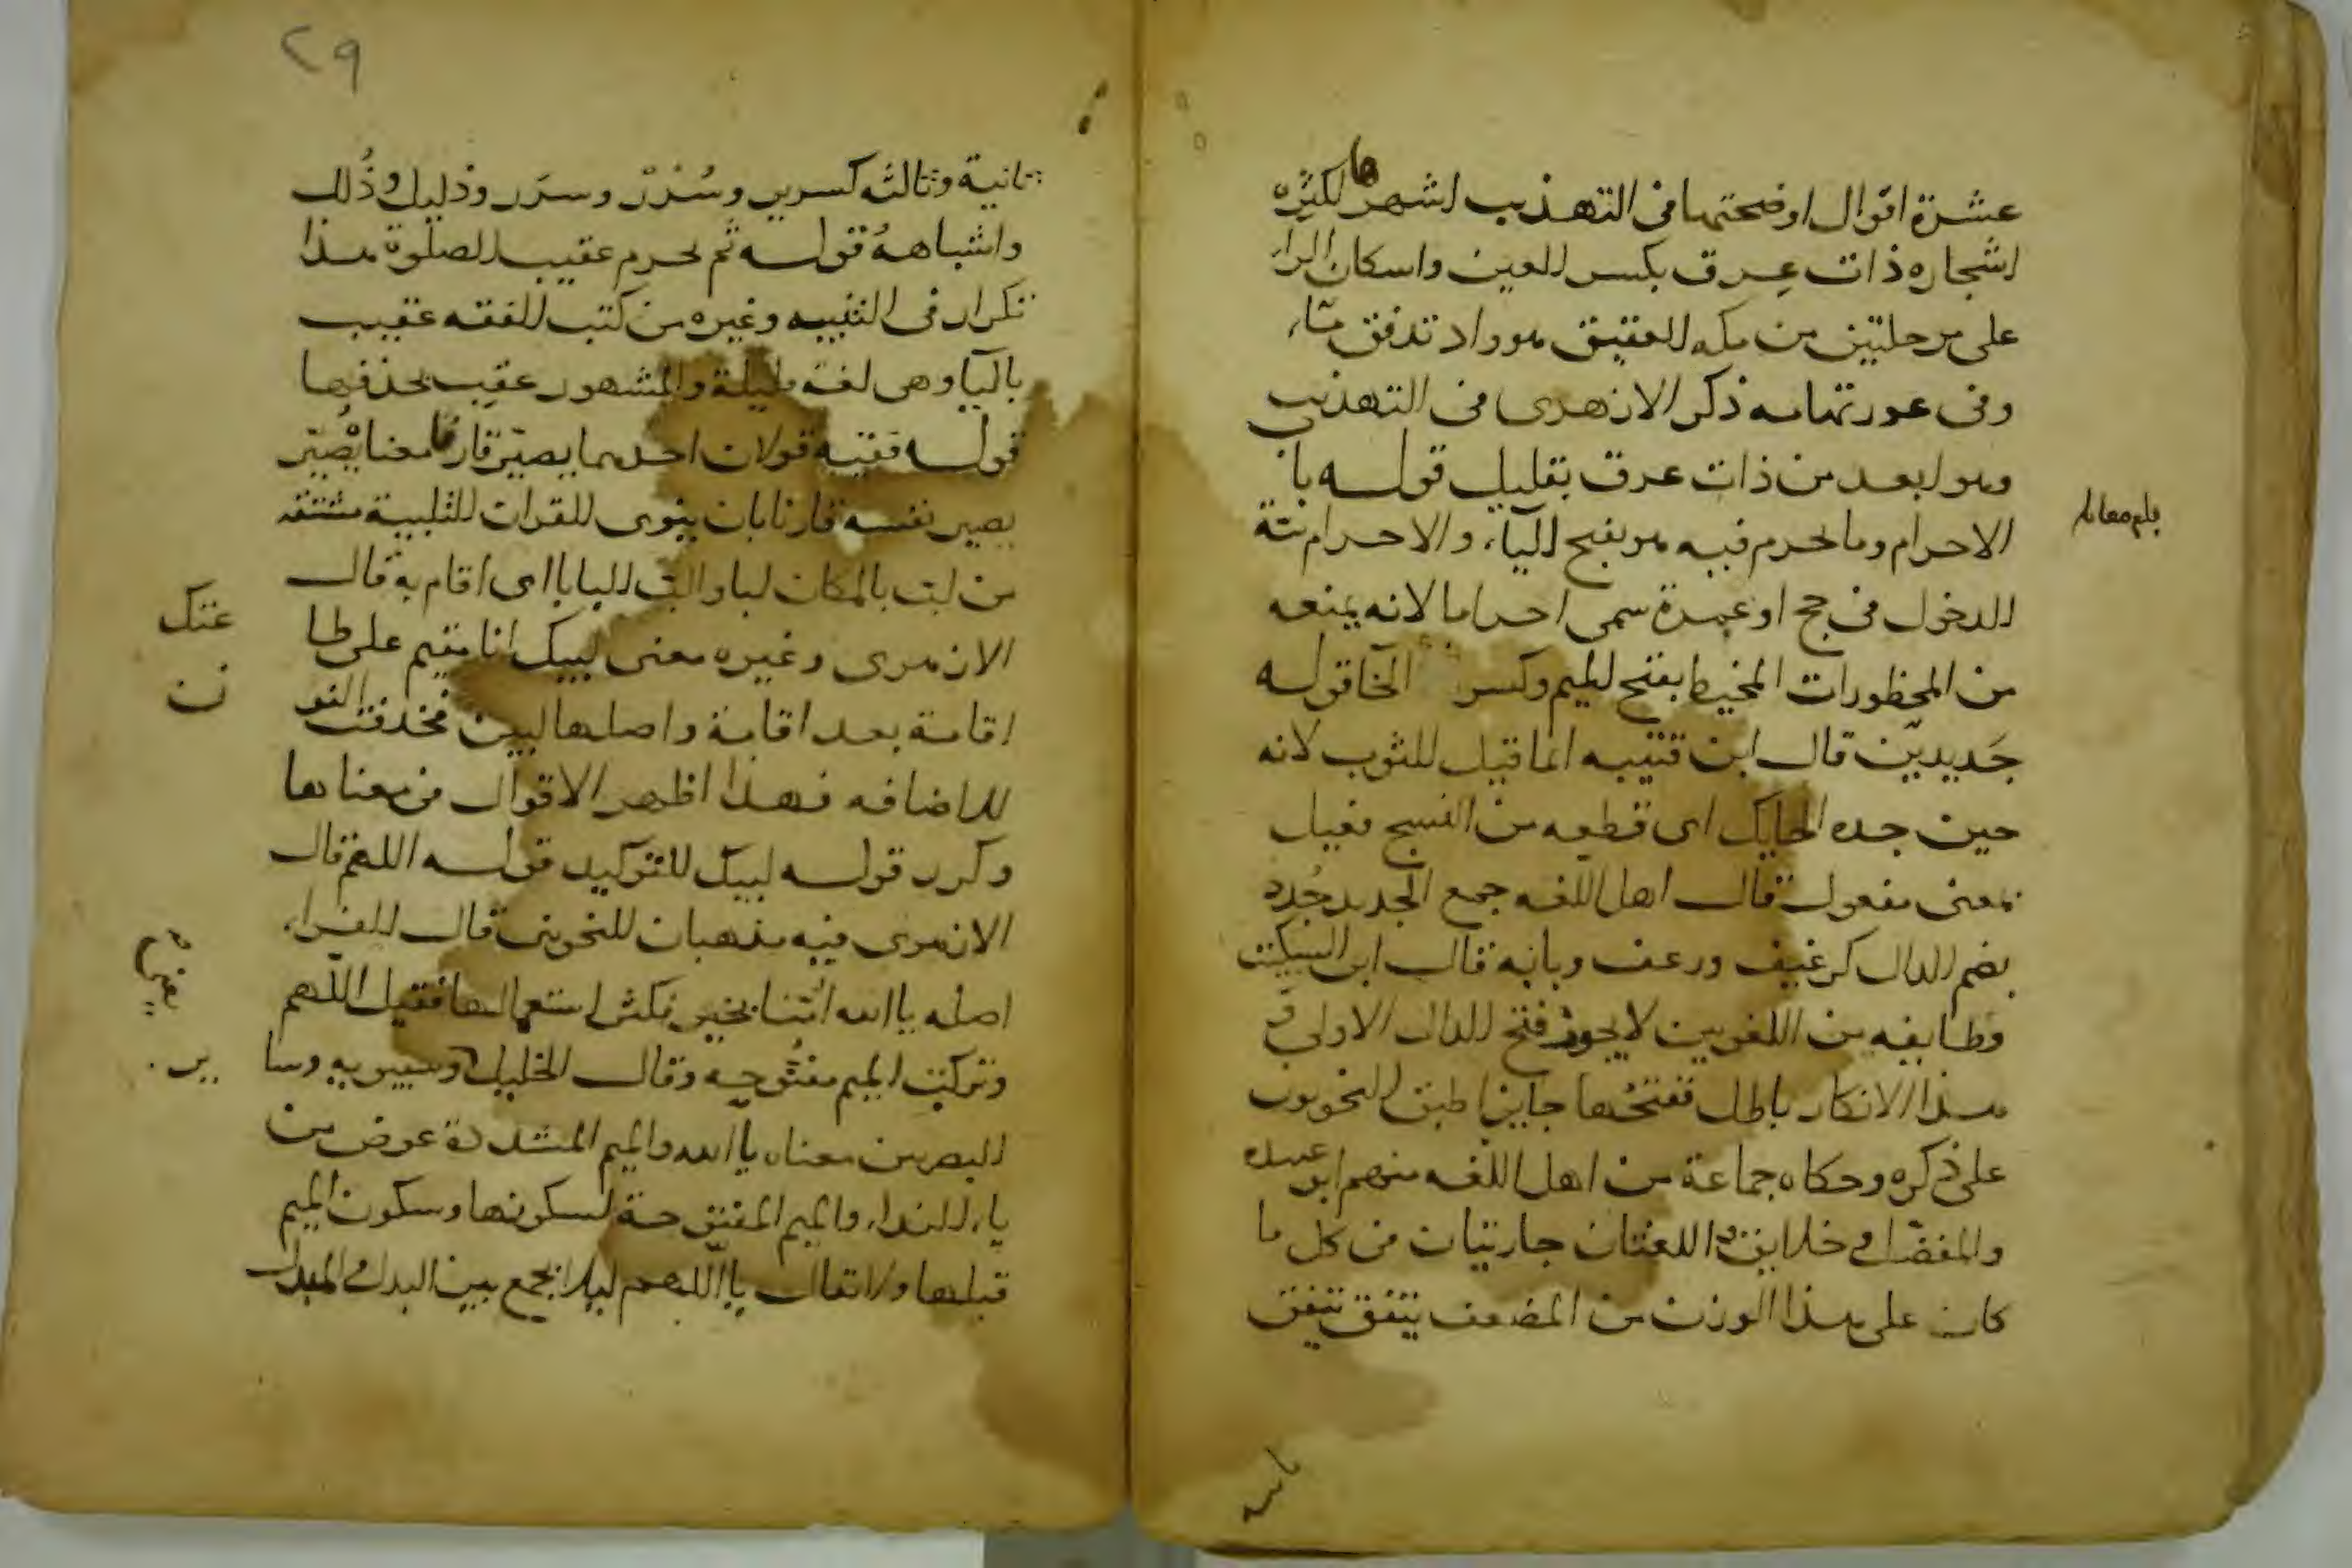 عشرة اقوال اوضحتها فى التهذيب اشهرها لكثرة
اشجاره ذات عِرق بكسر العين واسكان الراء
على مرحلتين من مكه العقيق هو واد تدفق ماء
وفى غور تهامه ذكر الازهرى فى التهذيب
وهو ابعد من ذات عرق بقليل قوله باب
الاحرام وما يحرم فيه هو بفتح الياء والاحرام نية
الدخول فى حج او عمرة سمى احراما لانه يمنعه
من المحظورات المخيط بفتح الميم وكسر الخا قوله
جَديدين قال ابن قتيبه انما قيل للثوب لانه
حين جده الحايك اى قطعه من النسج فعيل
بمعنى مفعول قال اهل اللغه جمع الجديد جُدد
بضم الدال كرغيف ورغف وبابه قال ابن السكيت
وطايفه من اللغويين لا يجوز فتح الدال الاولى و
هذا الانكار باطل ففتحها جايز اطبق النحويون
على ذكره وحكاه جماعة من اهل اللغه منهم ابو عبيدة
والمفضل فى خلايق و اللغتان جاريتان فى كل ما
كان على هذا الوزن من المضعف يتفق
بلغ مقابلة
٢٩
ثانية وثالثه كسرير وسُرُر وسرَر وذليل وذُلل
واشباهه قوله ثم يحرم عقيب الصلوة هذا
تكرار فى التنبيه وغيره من كتب الفقه عقيب
باليا وهى لغة قليلة والمشهور عقِب بحذفها
قوله ففيه قولان احدهما يصيّر قارنا معناه يُصيّر
يصير نفسه قارنا بان ينوى القران التلبية مشتقه
من لبّ بالمكان لبا والبّ البابا اى اقام به قال
الازهرى وغيره معنى لبيك انا مقيم على طا
عتك
اقامة بعد اقامة واصلها لبين فحذفت النو
ن
للاضافه فهذا اظهر الاقوال فى معناها
وكرر قوله لبيك للتوكيد قوله اللهم قال
الازهرى فيه مذهبان للنحويين قال الفراء
اصله يا الله ائتنا بخير فكثر استعمالها فقيل اللهم
وتركت الميم مفتوحة وقال الخليل وسيبويه وسا
ير
البصريين معناه يا الله والميم المشددة عوض من
ياء النداء والميم المفتوحة لسكونها وسكون الميم
قبلها ولا تقال يا اللهم ليلا يجمع بين البدل والمبدل